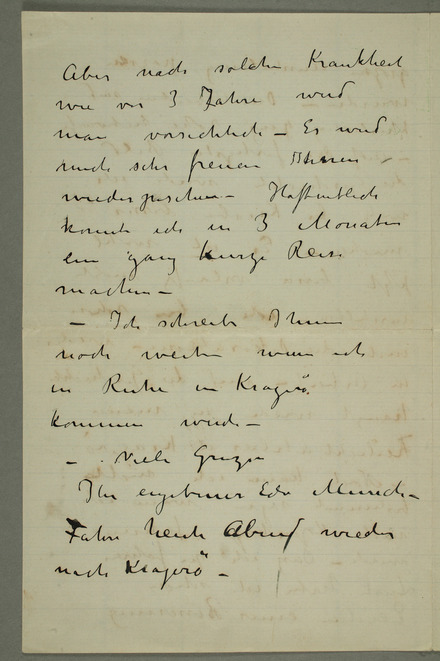 Aber nach solcher Krankheit
wie vor 3 Jahre wird
man vorsichtich – Es wird
mich sehr freuen Ihnen
wiederzusehen – Hoffentlich
komme ich in 3 Monaten
eine ganz kurze Reise
machen –
– Ich schreibe Ihnen
noch weiter wenn ich
in Ruhe in Kragerö
kommen werde –
– Viele Grüsse
Ihr ergebener Edv Munch –
Fahre heute Abend wieder
nach Kragerö –